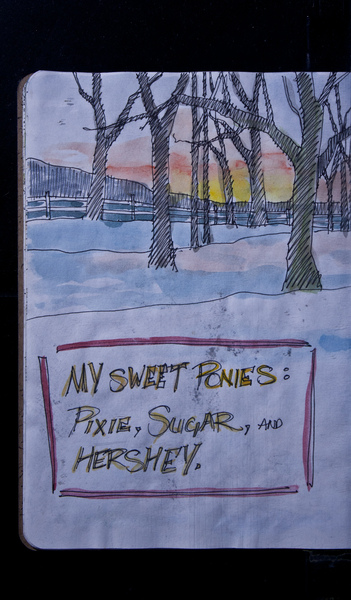 MY SWEET PONIES:
PIXIE, SUGAR, AND
HERSHEY.